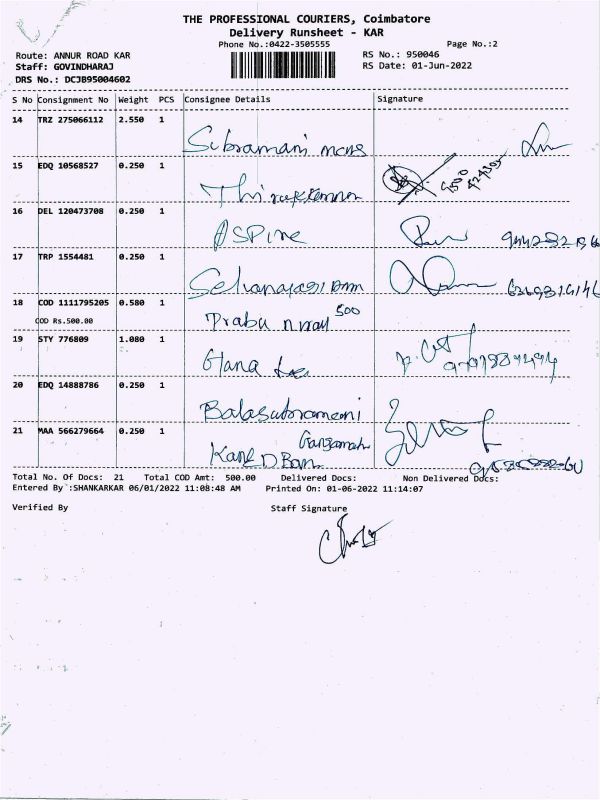 THE PROFESSIONAL COURIERS, Coimbatore
Delivery Runsheet - KAR
Phone No.:0422-3505555
Page No.:2
Route: ANNUR ROAD KAR
RS No.: 950046
Staff: GOVINDHARAJ
RS Date: 01-Jun-2022
DRS No.: DCJB95004602
S No Consignment No Weight PCS Consignee Details Signature
14 TRZ 275066112 2.550 1
Subramani
15 EDQ 10568527 0.250 1
16 DEL 120473708 0.250 1
ASPire
17 TRP 1554481 0.250 1
18 COD 1111795205 0.580 1
COD Rs.500.00
Prabu 500
19 STY 776809 1.080 1
Gana
20 EDQ 14888786 0.250 1
Balasubramani
21 MAA 566279664 0.250 1
Total No. Of Docs: 21 Total COD Amt: 500.00 Delivered Docs: Non Delivered Docs:
Entered By :SHANKARKAR 06/01/2022 11:08:48 AM Printed On: 01-06-2022 11:14:07
Verified By Staff Signature